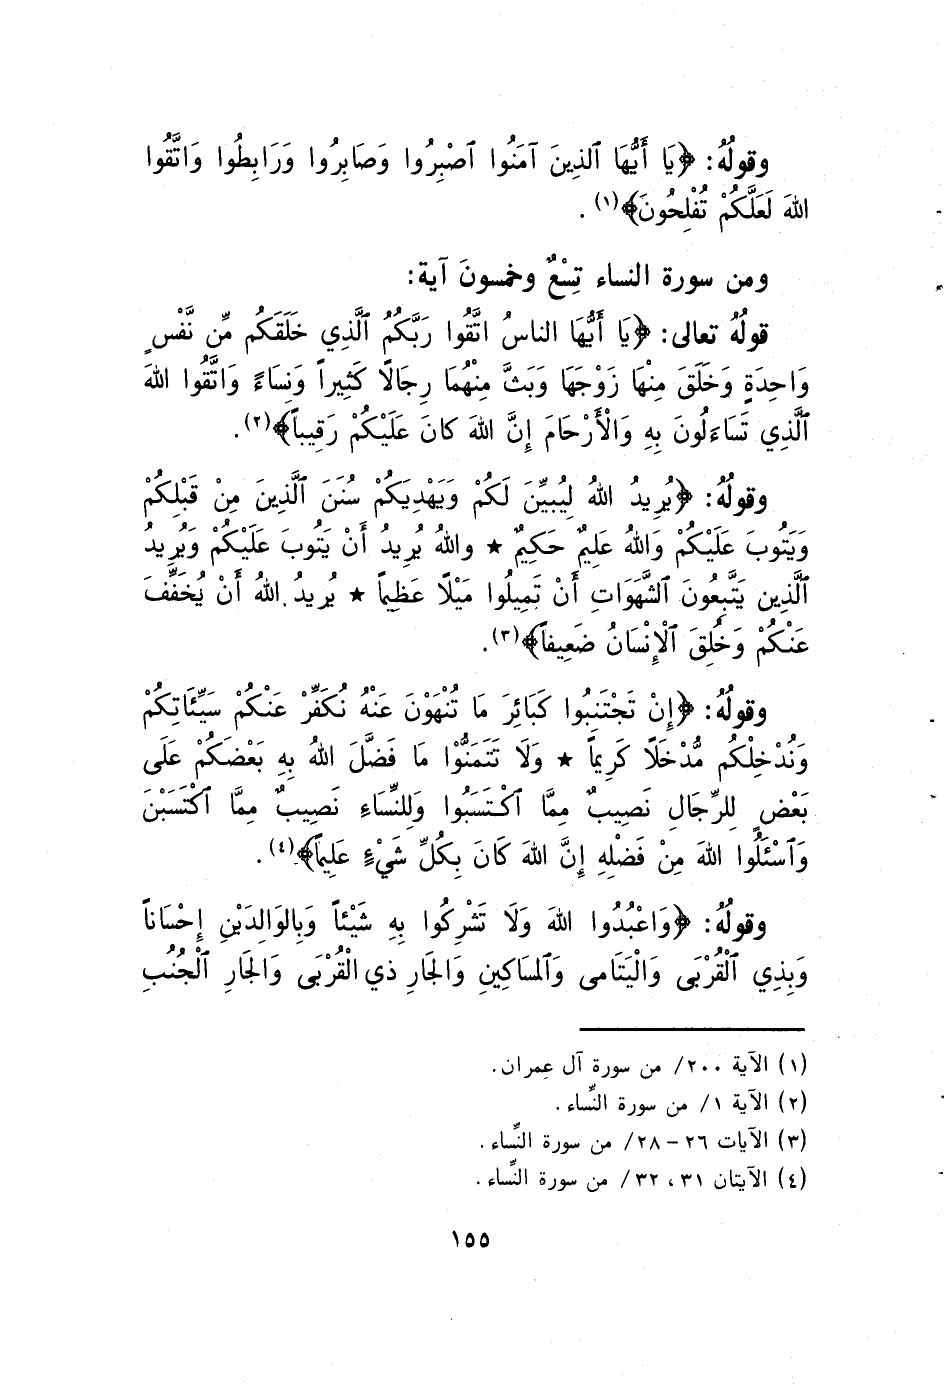 وقولُهُ: ﴿يَا أَيُّهَا ٱلذِينَ آمَنُوا ٱصْبِرُوا وَصَابِرُوا وَرَابِطُوا وَاتَّقُوا
اللهَ لَعَلَّكُمْ تُفْلِحُونَ﴾(١).
ومن سورة النساء تِسْعٌ وخمسونَ آية:
قولُهُ تعالى: ﴿يَا أَيُّهَا الناسُ اتَّقُوا رَبَّكُمُ ٱلَّذِي خَلَقَكُم مِّن نَّفْسٍ
وَاحِدَةٍ وَخَلَقَ مِنْهَا زَوْجَهَا وَبَثَّ مِنْهُمَا رِجَالًا كَثِيراً وَنِسَاءً وَاتَّقُوا اللهَ
ٱلَّذِي تَسَاءَلُونَ بِهِ وَالْأَرْحَامَ إِنَّ اللهَ كانَ عَلَيْكُمْ رَقِيباً﴾(٢).
وقولُهُ: ﴿يُرِيدُ اللهُ لِيُبيِّنَ لَكُمْ وَيَهْدِيَكُمْ سُنَنَ ٱلَّذِينَ مِنْ قَبْلِكُمْ
وَيَتُوبَ عَلَيْكُمْ وَاللهُ عَلِيمٌ حَكِيمٌ ★ واللهُ يُرِيدُ أَنْ يَتُوبَ عَلَيْكُمْ وَيُرِيدُ
ٱلَّذِين يَتَّبِعُونَ ٱلشَّهَوَاتِ أَنْ تَمِيلُوا مَيْلًا عَظِيماً ★ يُرِيدُ اللهُ أَنْ يُخَفِّفَ
عَنْكُمْ وَخُلِقَ ٱلْإِنْسَانُ ضَعِيفاً﴾(٣).
وقولُهُ: ﴿إِنْ تَجْتَنِبُوا كَبَائِرَ مَا تُنْهَوْنَ عَنْهُ نُكَفِّرْ عَنْكُمْ سَيِّئَاتِكُمْ
وَنُدْخِلْكُم مُّدْخَلًا كَرِيماً ★ وَلَا تَتَمَنَّوْا مَا فَضَّلَ اللهُ بِهِ بَعْضَكُمْ عَلَى
بَعْضٍ لِلرِّجَالِ نَصِيبٌ مِمَّا ٱكْتَسَبُوا وَلِلنِّسَاءِ نَصِيبٌ مِمَّا ٱكْتَسَبْنَ
وَٱسْئَلُوا اللهَ مِنْ فَضْلِهِ إِنَّ اللهَ كَانَ بِكُلِّ شَيْءٍ عَلِيماً﴾(٤).
وقولُهُ: ﴿وَاعْبُدُوا اللهَ وَلَا تَشْرِكُوا بِهِ شَيْئاً وَبِالوَالِدَيْنِ إِحْسَاناً
وَبِذِي ٱلْقُرْبَى وَالْيَتَامى وَٱلمسَاكِينِ وَالجَارِ ذي القُرْبَى وَالجَارِ ٱلْجُنُبِ
(١) الآية ٢٠٠/ من سورة آل عِمران.
(٢) الآية ١/ من سورة النِّساء.
(٣) الآيات ٢٦ - ٢٨/ من سورة النِّساء.
(٤) الآيتان ٣١، ٣٢/ من سورة النِّساء.
١٥٥